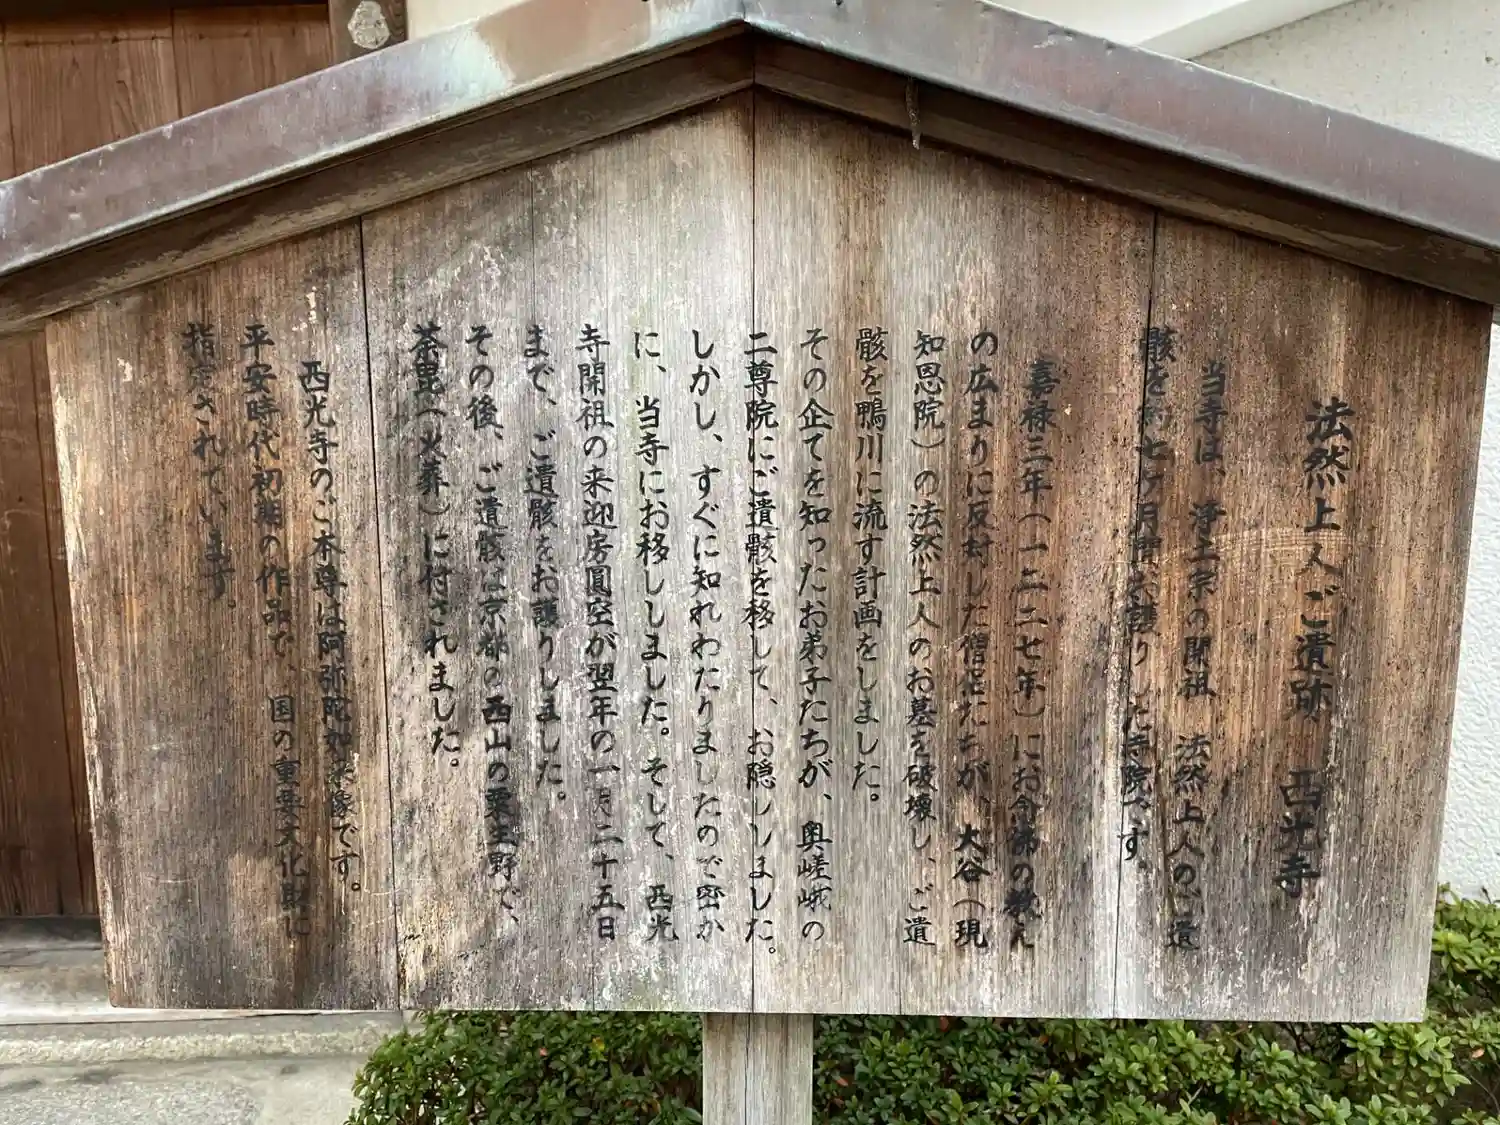 法然上人ご遺跡 西光寺
当寺は、浄土宗の開祖 法然上人のご遺
骸を約七ヶ月間お護りした寺院です。
嘉禄三年(一二二七年)にお念佛の教え
の広まりに反対した僧侶たちが、大谷(現
知恩院)の法然上人のお墓を破壊し、ご遺
骸を鴨川に流す計画をしました。
その企てを知ったお弟子たちが、奥嵯峨の
二尊院にご遺骸を移して、お隠ししました。
しかし、すぐに知れわたりましたので密か
に、当寺にお移ししました。そして、西光
寺開祖の来迎房圓空が翌年の一月二十五日
まで、ご遺骸をお護りしました。
その後、ご遺骸は京都の西山の粟生野で、
茶毘(火葬)に付されました。
西光寺のご本尊は阿弥陀如来像です。
平安時代初期の作品で、国の重要文化財に
指定されています。